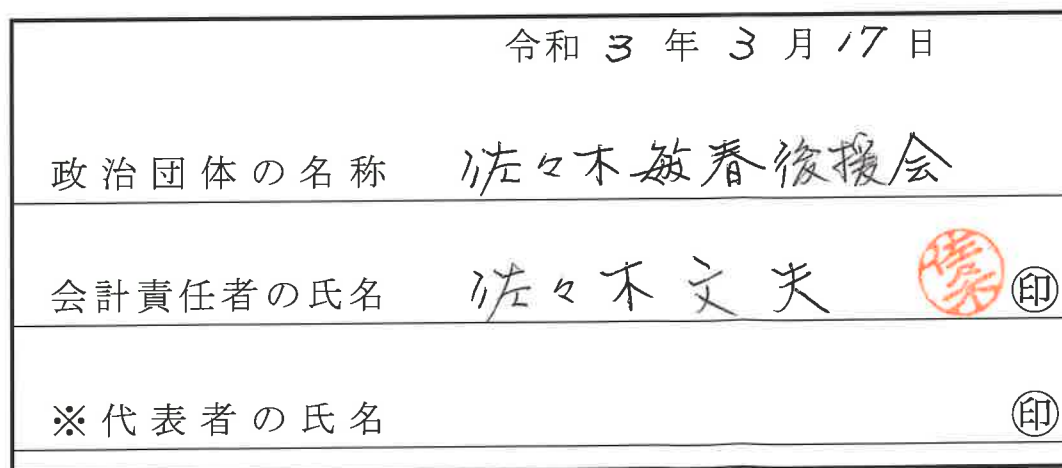 令和 3 年 3 月 17 日
政治団体の名称 佐々木敏春後援会
会計責任者の氏名 佐々木文夫 佐々木 ㊞
※代表者の氏名 ㊞